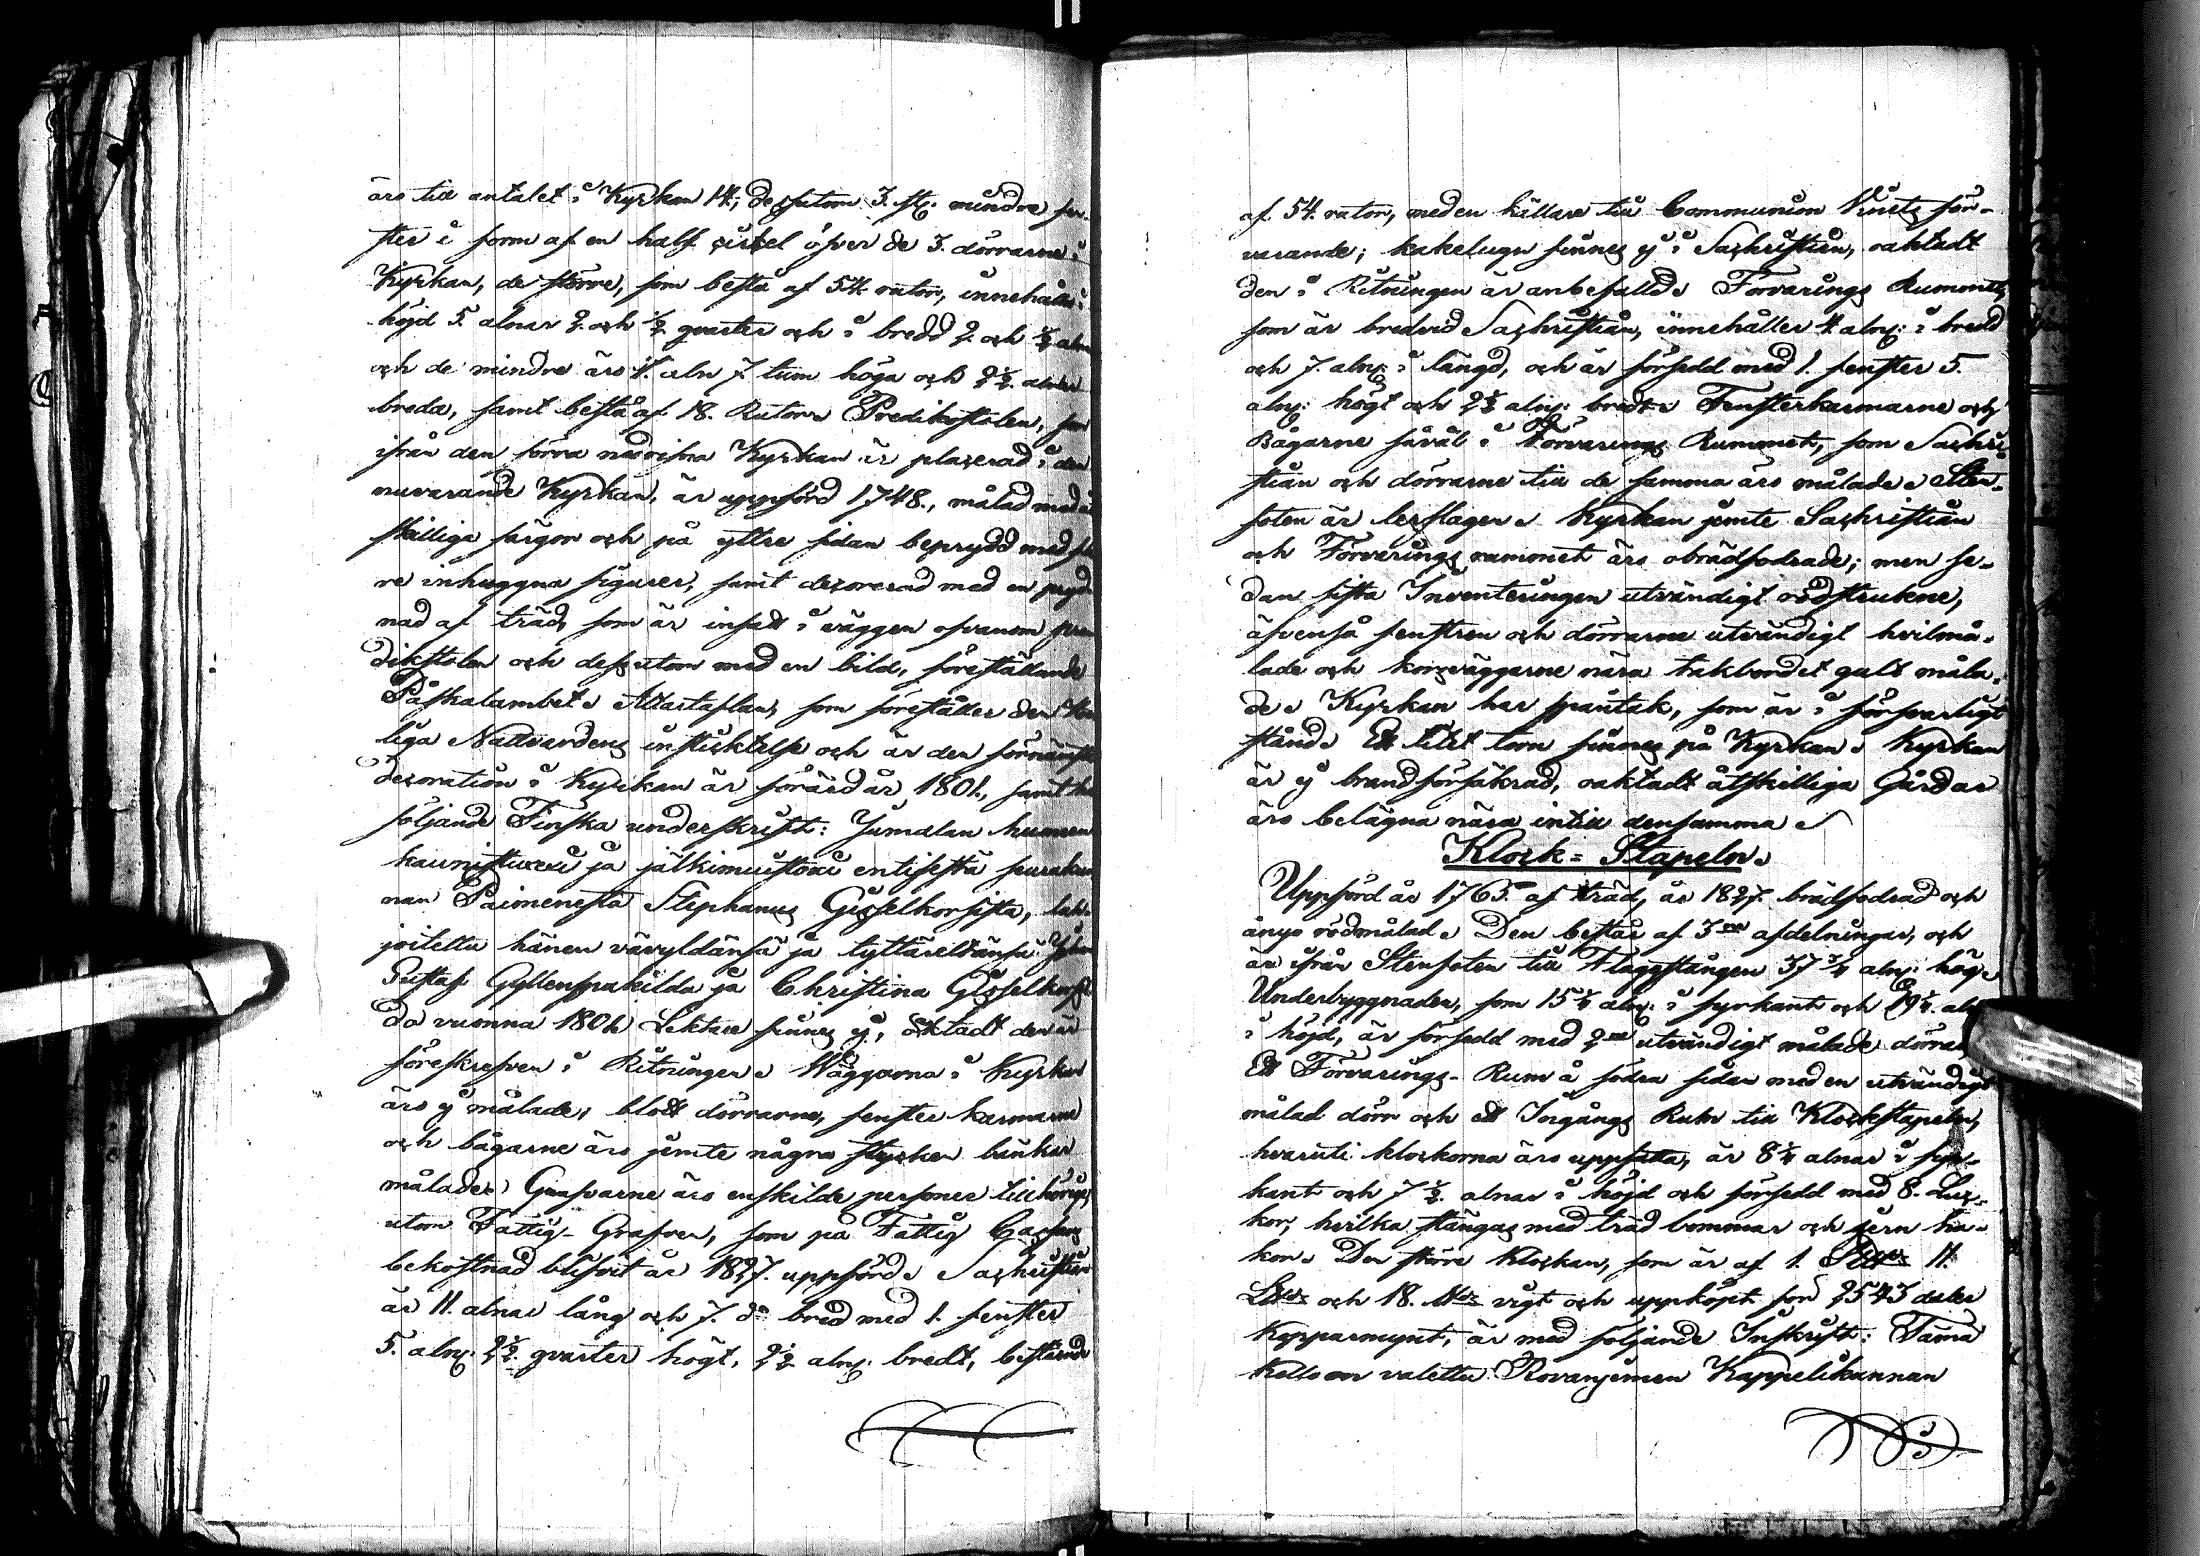 äro till antalet i Kyrkan 14; dessutom 3. st. mindre fen-
ster i form af en half cirkel öfver de 3. dörrarne i
Kyrkan, de större, som bestå af 54 rutor, innehålla i
höjd 5. alnar 2. och ½ qvarter och i bredd 2. och ½ aln
och de mindre äro 1. aln 7 tum höga och 2½. alnar
breda, samt bestå af 18. Rutor. Predikostolen, som
ifrån den förra nedrifna Kyrkan är placerad i den
nuvarande Kyrkan, är uppförd 1748., målad med
skilliga färgor och på yttre sidan beprydd med
re inhuggna figurer, samt decorerad med en pryd-
nad af träd, som är insatt i väggen ofvanom pre-
dikstolen och dessutom med en bild, föreställande
Påskalambet. Altartaflan, som föreställer den
liga Nattvardens instiktelse och är den förnämsta
decoration i Kyrkan är förärd år 1801., samt har
följande Finska underskrift: Jumalan huonen
kaunistuxexi ja jälkimuistoxi entisestä seurakun
nan Paimenesta Stephanus Gisselkorsista, lah-
joitettu hänen vävyldänsä ja tyttäreldänsä Johan
Gustaf Gyllenspakilda ja Christina Gisselkors
da vuonna 1801. Lektare finnes ej, oaktadt den är
föreskrefven i Ritningen. Wäggarna i Kyrkan
äro ej målade, blott dörrarne, fenster karmarne
och bågarne äro jemte några stycken bänkar
målade. Grafvarne äro enskilde personer tillhöriga,
utom Fattig-Grafven, som på Fattig Cassans
bekostnad blifvit år 1827. uppförd. Sachristian
är 11. alnar lång och 7. d:o bred med 1. fenster
5. alnr. 2½. qvarter högt, 2½. alnr. bredt, bestående
af 54 rutor, med en källare till Communion Vinets för-
varande; kakelugn finnes ej i Sachristian, oaktadt
den i Ritningen är anbefalld. Förvarings Rummet,
som är bredvid Sachristian, innehåller 4. alnr. i bredd
och 7. alnr. i längd, och är försedd med 1. fenster 5.
alnr. högt och 2½ alnr. bredt. Fensterkarmarne och
Bågarne såväl i Förvarings Rummet, som Sachri-
stian och dörrarne till de samma äro målade. Sten-
foten är lerslagen. Kyrkan jemte Sachristian
och Förvarings rummet äro obrädfodrade; men se-
dan sista Inventeringen utvändigt rödstrukne,
äfvenså fenstren och dörrarne utvändigt hvitmå-
lade och korsväggarne nära takbordet gult måla-
de. Kyrkan har spåntak, som är i försvarligt
stånd. Ett litet torn finnes på Kyrkan. Kyrkan
är ej brandförsäkrad, oaktadt åtskilliga Gårdar
äro belägna nära intill densamma.
Klock-Stapeln.
Uppförd år 1765. af träd, är 1827. brädfodrad och
ånyo rödmålad. Den består af 3ne afdelningar, och
är ifrån Stenfoten till Flaggstången 37 ¾ alnr. hög.
Underbyggnaden, som 15 ¼ alnr. i fyrkant och 19 ¼. aln
i höjd, är försedd med 2ne utvändigt målade dörrar,
Ett Förvarings-Rum å södra sidan med en utvändigt
målad dörr och ett Ingångs Rum till Klockstapeln,
hvaruti klockorna äro uppsatta, är 8 ¼ alnar i fyr-
kant och 7 ½. alnar i höjd och försedd med 8. Luc-
kor, hvilka stängas med träd bommar och jern ha-
kor. Den större Klockan, som är af 1. 11.
och 18. vigt och uppköpt för 2543 daler
Kopparmynt, är med följande Inskrift: Tämä
kello on valettu Rovanjemen Kappelikunnan